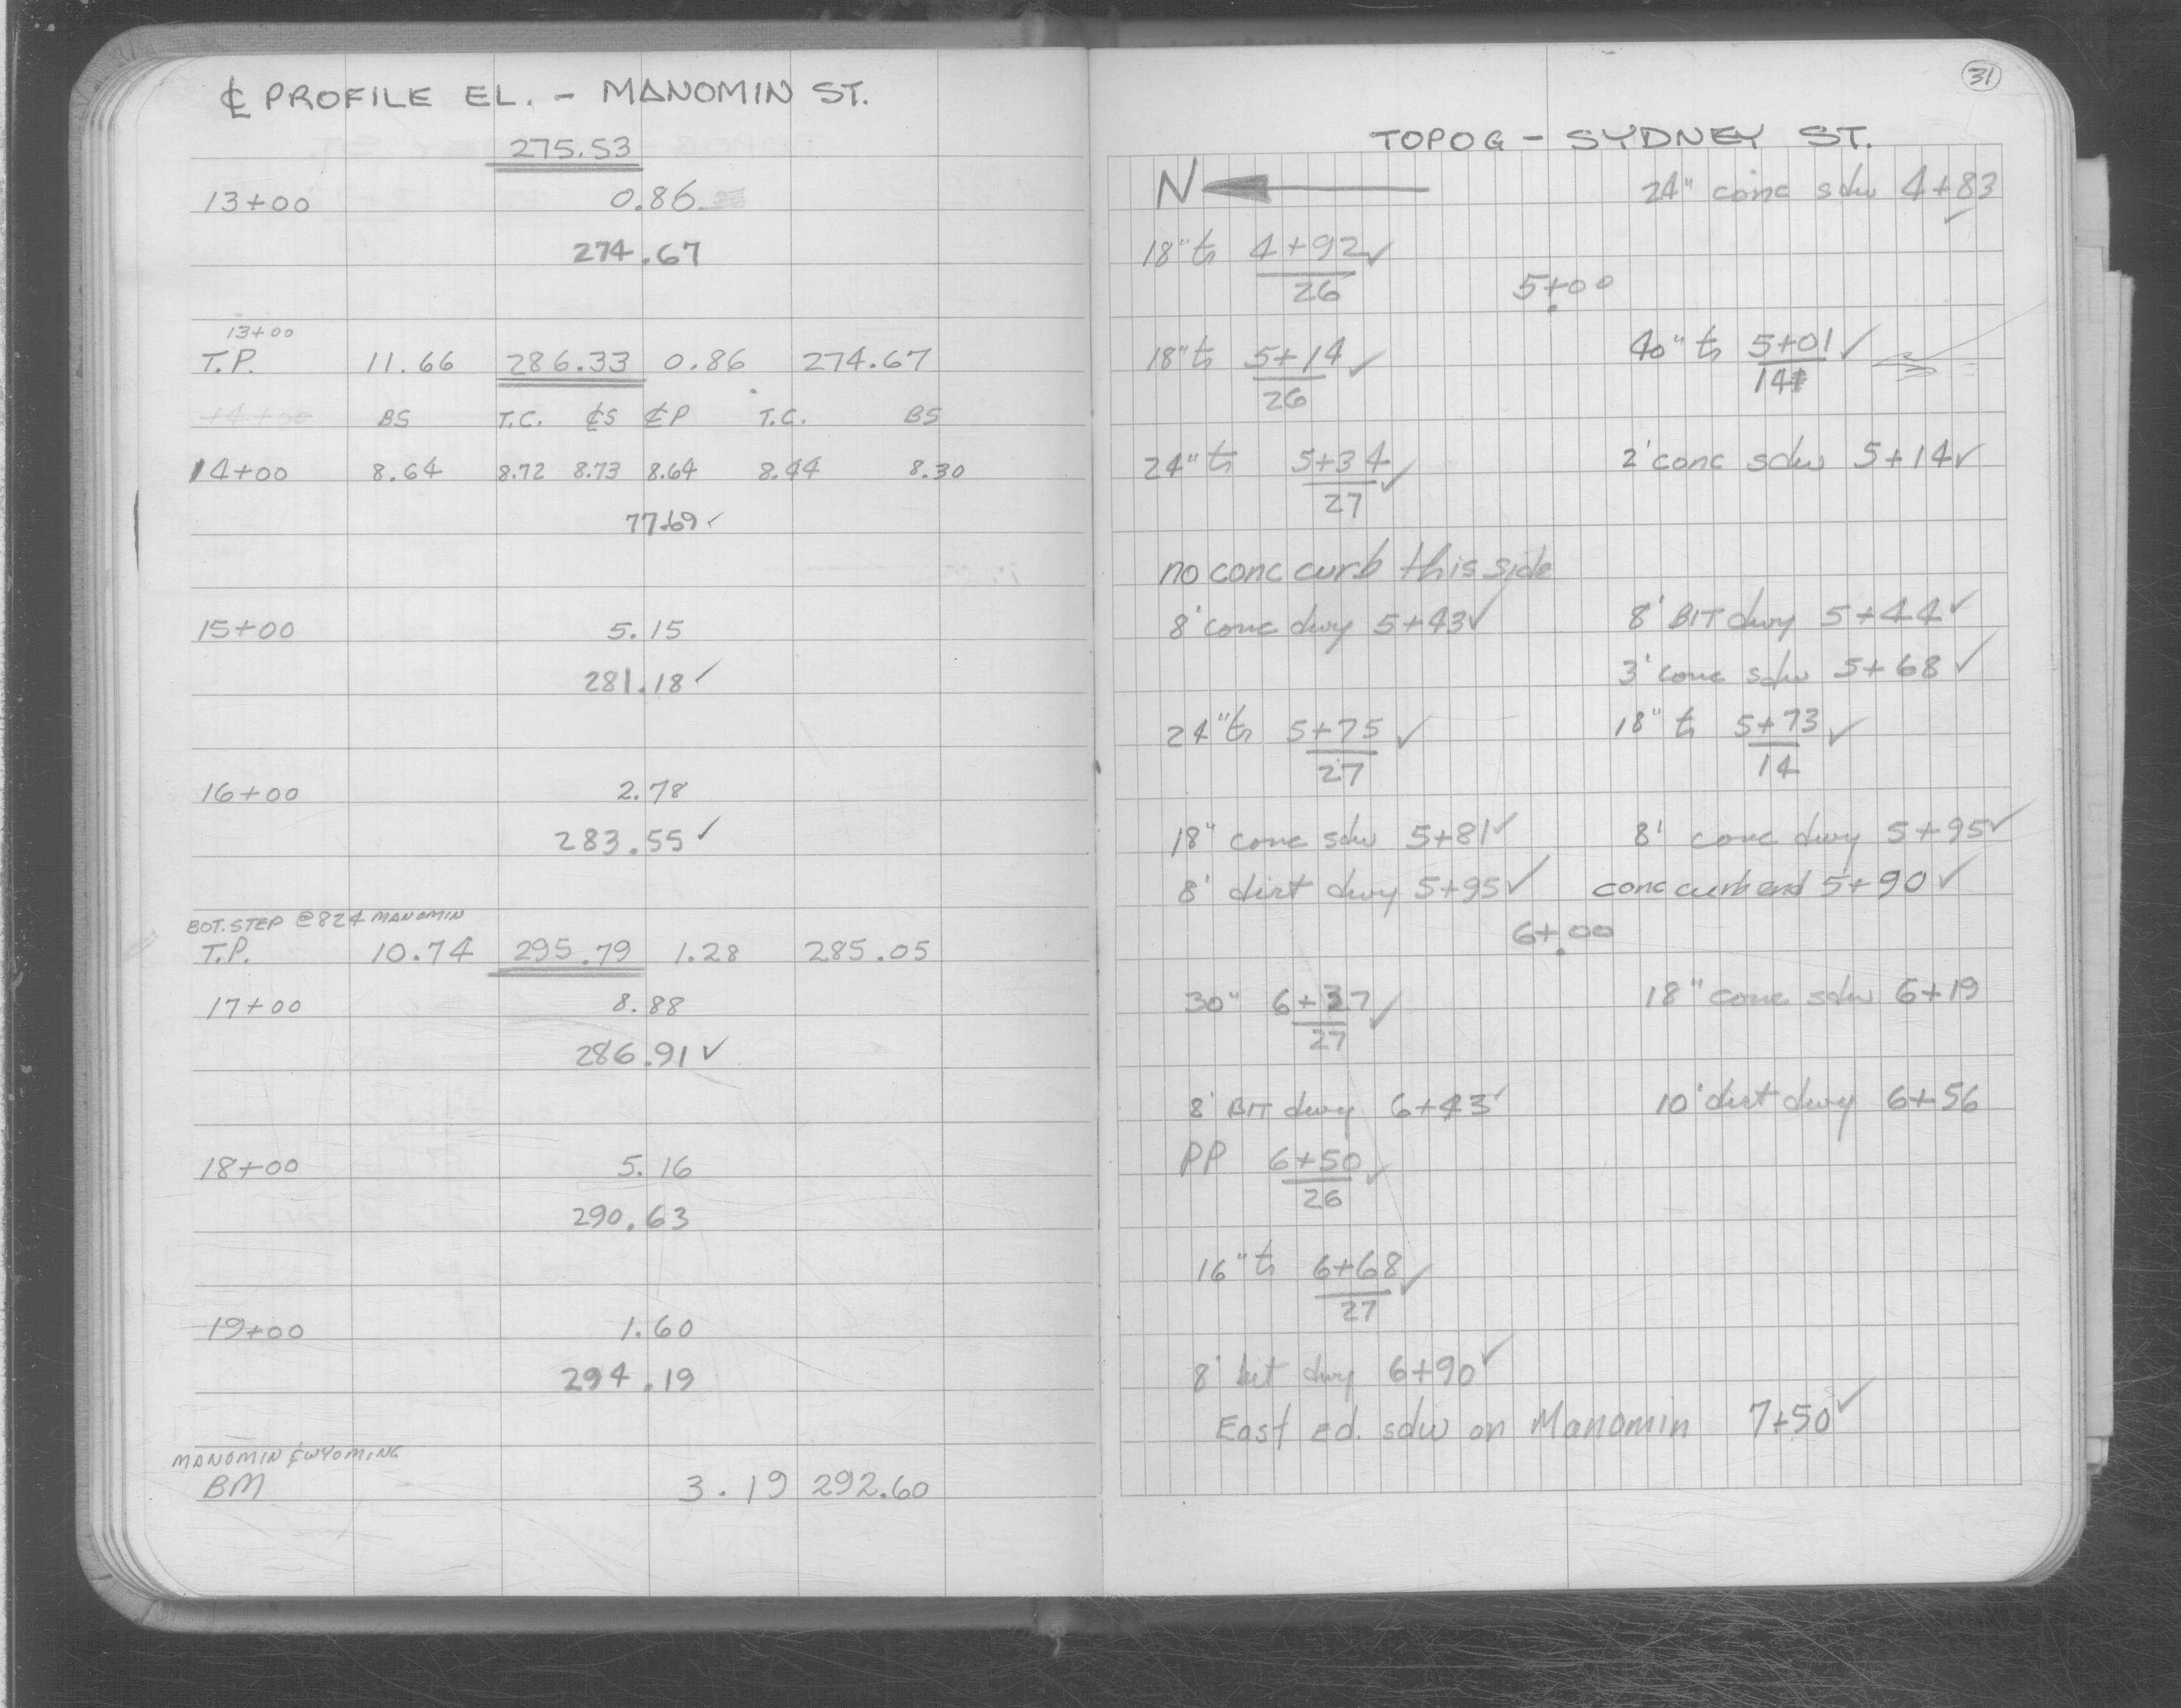 ℄ PROFILE EL. - MANOMIN ST.
275.53
13+00 0.86
274.67
13+00
T.P. 11.66 286.33 0.86 274.67
14+50 BS T.C. ℄S ℄P T.C. BS
14+00 8.64 8.72 8.73 8.64 8.44 8.30
77.69 ✓
15+00 5.15
281.18 ✓
16+00 2.78
283.55 ✓
BOT. STEP @ 824 MANOMIN
T.P. 10.74 295.79 1.28 285.05
17+00 8.88
286.91 ✓
18+00 5.16
290.63
19+00 1.60
294.19
MANOMIN & WYOMING
BM 3.19 292.60
31
TOPOG - SYDNEY ST.
N 24" conc sdw 4+83 ✓
18" tr 4+92 ✓
26
5+00
18" tr 5+14 ✓ 40" tr 5+01 ✓
26 14
24" tr 5+34 ✓ 2' conc sdw 5+14 ✓
27
no conc curb this side
8' conc dwy 5+43 ✓ 8' BIT dwy 5+44 ✓
3' conc sdw 5+68 ✓
24" tr 5+75 ✓ 18" tr 5+73 ✓
27 14
18" conc sdw 5+81 ✓ 8' conc dwy 5+95 ✓
8' dirt dwy 5+95 ✓ conc curb end 5+90 ✓
6+00
30" 6+37 ✓ 18" conc sdw 6+19
27
8' BIT dwy 6+43 ✓ 10' dirt dwy 6+56
PP 6+50 ✓
26
16" tr 6+68 ✓
27
8' bit dwy 6+90 ✓
East ed. sdw on Manomin 7+50 ✓